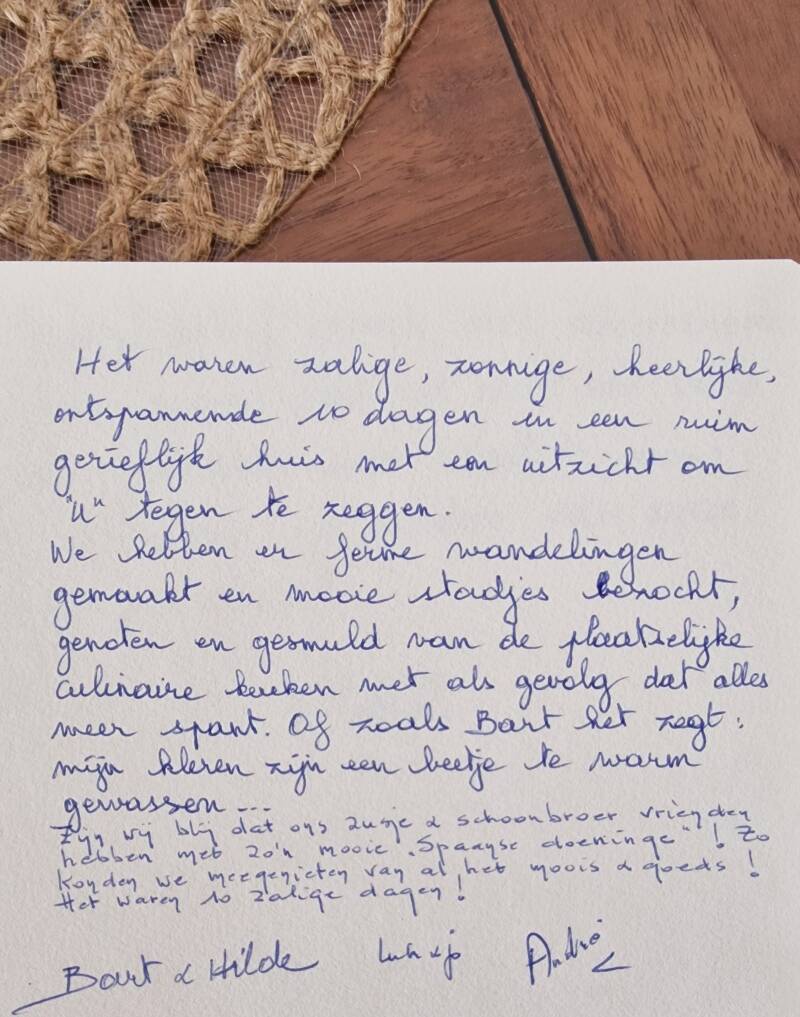 Het waren zalige, zonnige, heerlijke,
ontspannende 10 dagen in een ruim
gerieflijk huis met een uitzicht om
"U" tegen te zeggen.
We hebben er ferme wandelingen
gemaakt en mooie stadjes bezocht,
genoten en gesmuld van de plaatselijke
culinaire keuken met als gevolg dat alles
meer spant. Of zoals Bart het zegt:
mijn kleren zijn een beetje te warm
gewassen...
Zijn wij blij dat ons zusje & schoonbroer vrienden
hebben met zo'n mooie "Spaanse doeninge"! Zo
konden we meegenieten van al het moois & goeds!
Het waren 10 zalige dagen!
Bart & Hilde André